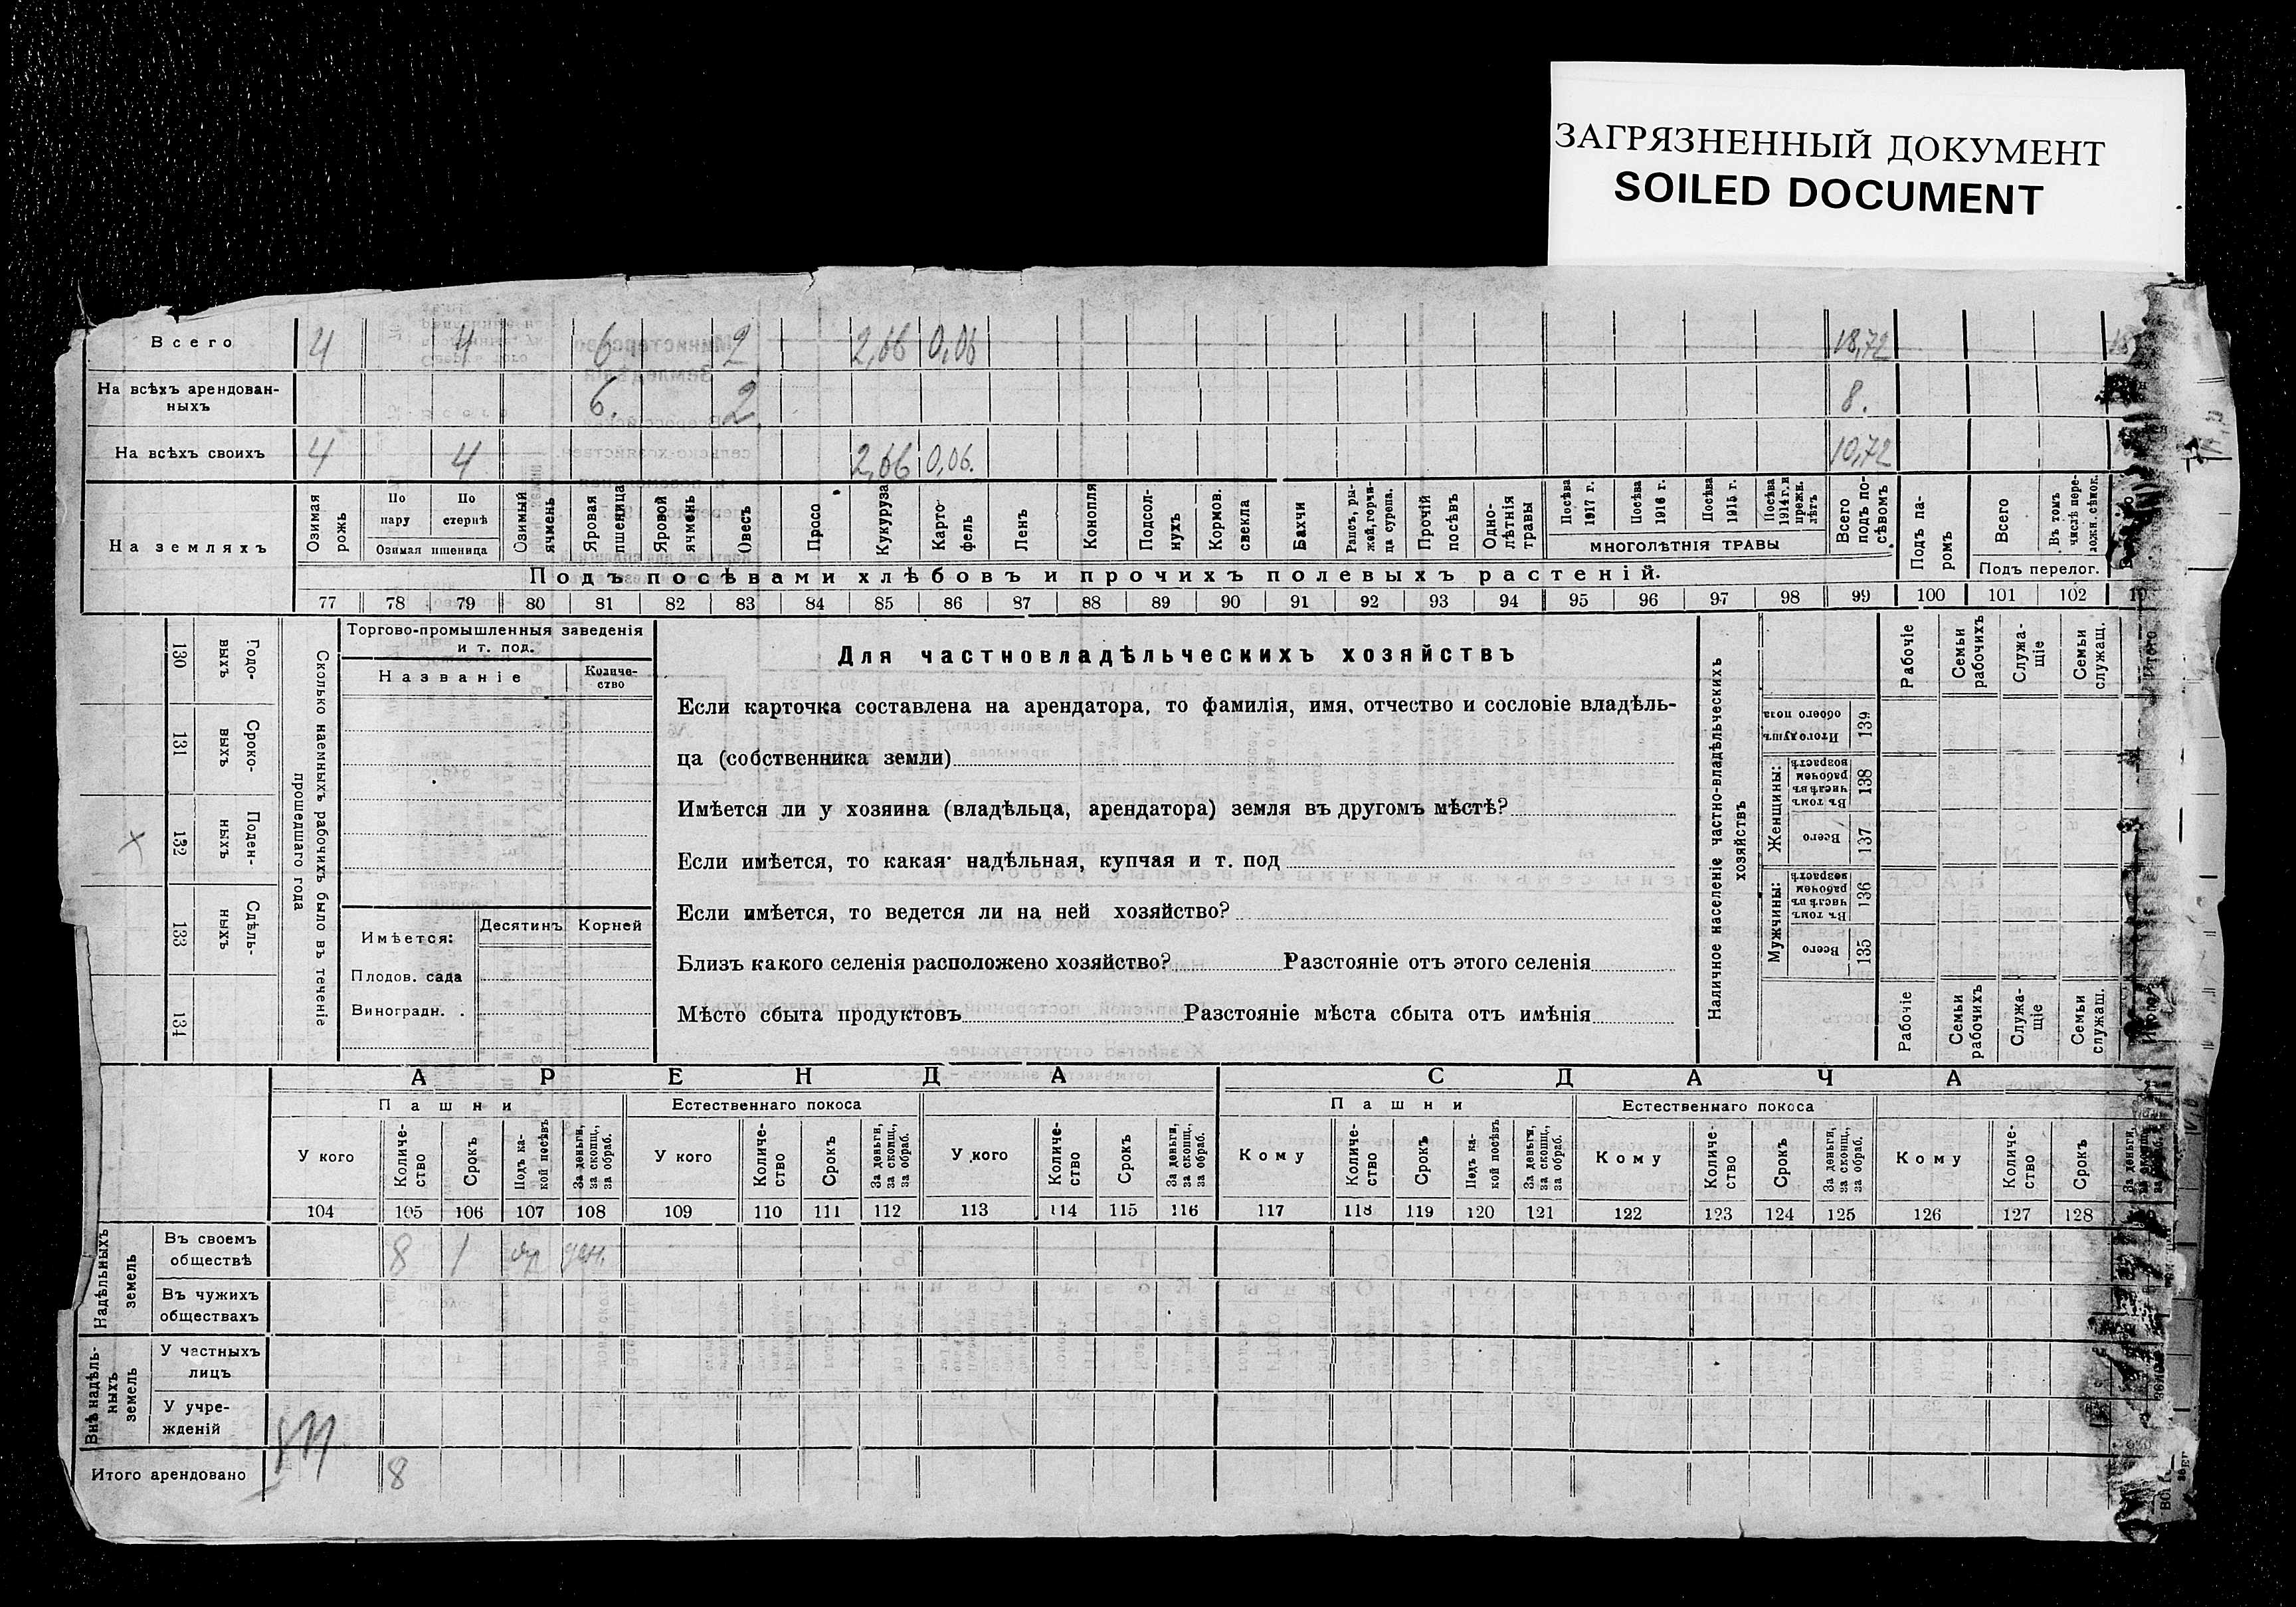 ЗАГРЯЗНЕННЫЙ ДОКУМЕНТ
SOILED DOCUMENT
Всего 4 4 6 2 2,66 0,06 18,72
На всѣхъ арендован-
ныхъ 6. 2 8.
На всѣхъ своихъ 4 4 2,66 0,06. 10,72
На земляхъ
Озимая рожь
По пару
По стернѣ
Озимая пшеница
Озимый ячмень
Яровая пшеница
Яровой ячмень
Овесъ
Просо
Кукуруза
Карто-
фель
Ленъ
Конопля
Подсол-
нухъ
Кормов. свекла
Бахчи
Рапсъ, ры-
жей, горчи-
ца сурепа.
Прочій посѣвъ
Одно-
лѣтнія травы
Посѣва 1917 г.
Посѣва 1916 г.
Посѣва 1915 г.
Посѣва 1914 г. и прежн. лѣтъ
МНОГОЛѢТНІЯ ТРАВЫ
Всего подъ по-
сѣвомъ
Подъ па-
ромъ
Всего
Въ томъ числѣ пере-
ложн. сѣнок.
Подъ перелог.
Подъ посѣвами хлѣбовъ и прочихъ полевыхъ растеній.
77 78 79 80 81 82 83 84 85 86 87 88 89 90 91 92 93 94 95 96 97 98 99 100 101 102
130 Годо-
выхъ
131 Сроко-
выхъ
132 Поден-
ныхъ
133 Сдѣль-
ныхъ
134
Сколько наемныхъ рабочихъ было въ теченіе
прошедшаго года
Торгово-промышленныя заведенія
и т. под.
Названіе
Количе-
ство
Имѣется:
Десятинъ
Корней
Плодов. сада
Виноградн. .
Для частновладѣльческихъ хозяйствъ
Если карточка составлена на арендатора, то фамилія, имя, отчество и сословіе владѣль-
ца (собственника земли)
Имѣется ли у хозяина (владѣльца, арендатора) земля въ другомъ мѣстѣ?
Если имѣется, то какая: надѣльная, купчая и т. под
Если имѣется, то ведется ли на ней хозяйство?
Близъ какого селенія расположено хозяйство? Разстояніе отъ этого селенія
Мѣсто сбыта продуктовъ Разстояніе мѣста сбыта отъ имѣнія
Наличное населеніе частно-владѣльческихъ
хозяйствъ
Итого душъ обоего пола 139
Женщины:
Въ томъ числѣ въ рабочемъ возрастѣ 138
Всего 137
Мужчины:
Въ томъ числѣ въ рабочемъ возрастѣ 136
Всего 135
Рабочіе
Семьи рабочихъ
Служа-
щіе
Семьи служащ.
Итого
Рабочіе
Семьи рабочихъ
Служа-
щіе
Семьи служащ.
Итого
АРЕНДА
СДАЧА
Пашни
Естественнаго покоса
Пашни
Естественнаго покоса
У кого
Количе-
ство
Срокъ
Подъ ка-
кой посѣвъ
За деньги, за скопщ., за обраб.
У кого
Количе-
ство
Срокъ
За деньги, за скопщ., за обраб.
У кого
Количе-
ство
Срокъ
За деньги, за скопщ., за обраб.
Кому
Количе-
ство
Срокъ
Подъ ка-
кой посѣвъ
За деньги, за скопщ., за обраб.
Кому
Количе
ство
Срокъ
За деньги, за скопщ., за обраб.
Кому
Количе-
ство
Срокъ
За деньги,
104 105 106 107 108 109 110 111 112 113 114 115 116 117 118 119 120 121 122 123 124 125 126 127 128
Надѣльныхъ земель
Въ своемъ
обществѣ 8 1 яр ден.
Въ чужихъ
обществахъ
Внѣ надѣль-
ныхъ земель
У частныхъ
лицъ
У учре-
жденій
Итого арендовано 8